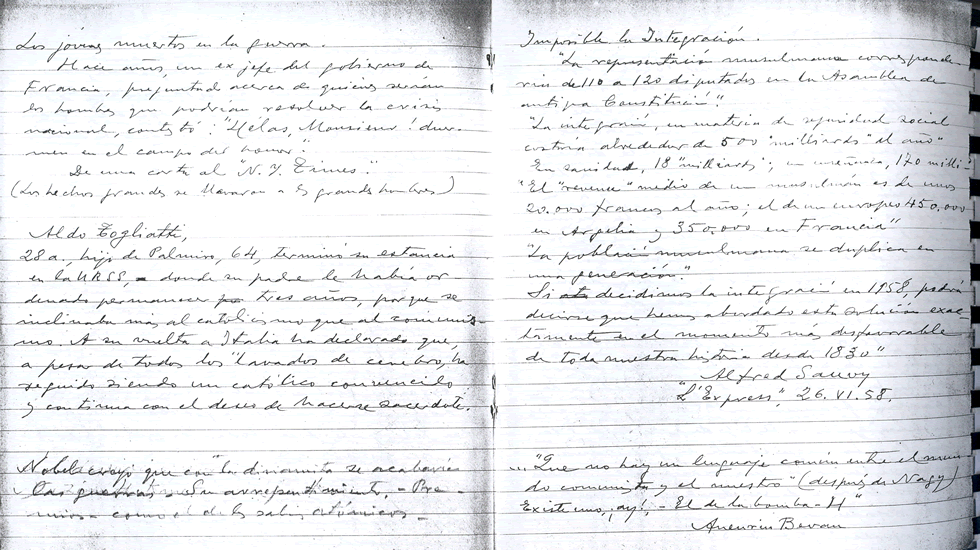 Los jóvenes muertos en la guerra.
Hace años, un ex jefe del gobierno de
Francia, preguntado acerca de quienes serían
los hombres que podrían resolver la crisis
nacional, contestó: "Hélas, Monsieur! duer-
men en el campo del honor."
De una carta al "N. Y. Times".
(Los hechos grandes se llevaron a los grandes hombres)
Aldo Togliatti,
28 a., hijo de Palmiro, 64, terminó su estancia
en la URSS, - donde su padre le había or-
denado permanecer tres años, porque se
inclinaba más al catolicismo que al comunis-
mo. A su vuelta a Italia ha declarado que,
a pesar de todos los "lavados de cerebro, ha
seguido siendo un católico convencido
y continua con el deseo de hacerse sacerdote.
Nobel creyó que con la dinamita se acabarían
las guerras. Su arrepentimiento. - Pre-
mios - como el de los sabios atómicos -
Imposible la Integración.
"La representación musulmana corresponde
ría de 110 a 120 diputados en la Asamblea de
antigua Constitución".
"La integración, en materia de seguridad social
costaría alrededor de 500 "milliards" el año"
En sanidad, 18 "milliards"; en enseñanza, 170 milli-
"El "revenu" medio de un musulmán es de unos
20.000 francos al año; el de un europeo 450.000
en Argelia y 350.000 en Francia"
"La población musulmana se duplica en
una generación."
Si decidimos la integración en 1958, podrá
decirse que hemos abordado esta solución exac-
tamente en el momento más desfavorable
de toda nuestra historia desde 1830"
Alfred Sauvy
"L'Express", 26. VI. 58.
... "Que no hay un lenguaje común entre el mun-
do comunista y el nuestro" (después de Nagy)
Existe uno, ¡ay!, - El de la bomba - H"
Aneurin Bevan